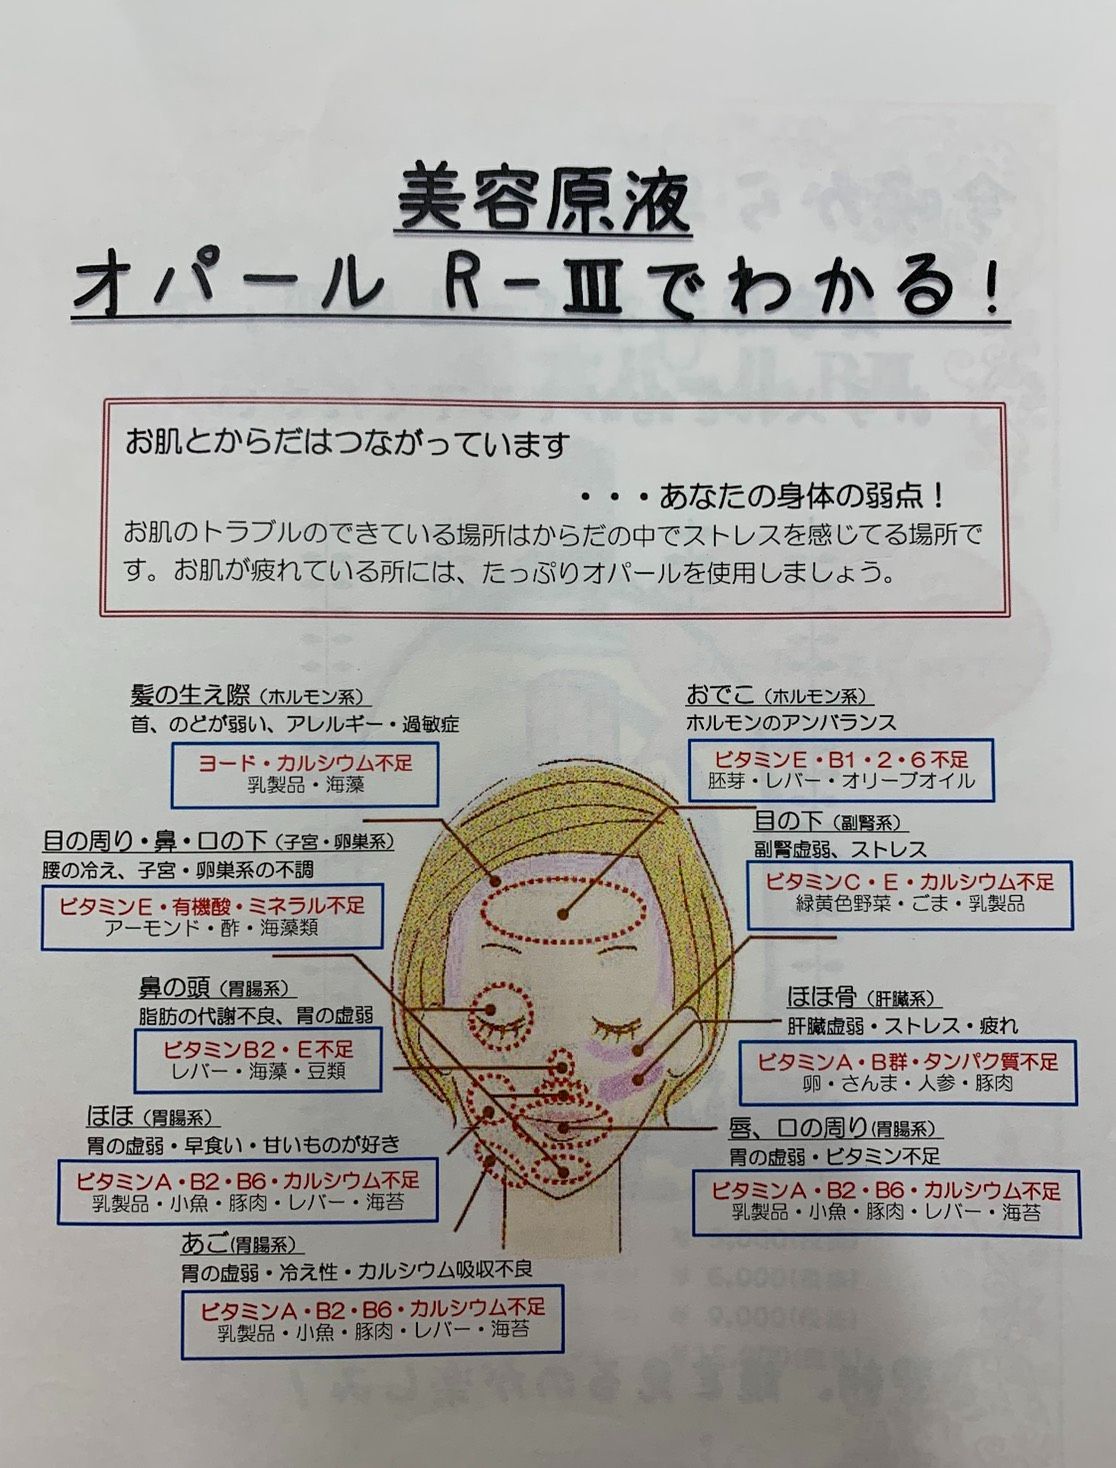 美容原液
オパール R-Ⅲでわかる!
お肌とからだはつながっています
・・・あなたの身体の弱点!
お肌のトラブルのできている場所はからだの中でストレスを感じてる場所で
す。お肌が疲れている所には、たっぷりオパールを使用しましょう。
髪の生え際(ホルモン系)
首、のどが弱い、アレルギー・過敏症
ヨード・カルシウム不足
乳製品・海藻
おでこ(ホルモン系)
ホルモンのアンバランス
ビタミンE・B1・2・6不足
胚芽・レバー・オリーブオイル
目の周り・鼻・口の下(子宮・卵巣系)
腰の冷え、子宮・卵巣系の不調
ビタミンE・有機酸・ミネラル不足
アーモンド・酢・海藻類
目の下(副腎系)
副腎虚弱、ストレス
ビタミンC・E・カルシウム不足
緑黄色野菜・ごま・乳製品
鼻の頭(胃腸系)
脂肪の代謝不良、胃の虚弱
ビタミンB2・E不足
レバー・海藻・豆類
ほほ骨(肝臓系)
肝臓虚弱・ストレス・疲れ
ビタミンA・B群・タンパク質不足
卵・さんま・人参・豚肉
ほほ(胃腸系)
胃の虚弱・早食い・甘いものが好き
ビタミンA・B2・B6・カルシウム不足
乳製品・小魚・豚肉・レバー・海苔
唇、口の周り(胃腸系)
胃の虚弱・ビタミン不足
ビタミンA・B2・B6・カルシウム不足
乳製品・小魚・豚肉・レバー・海苔
あご(胃腸系)
胃の虚弱・冷え性・カルシウム吸収不良
ビタミンA・B2・B6・カルシウム不足
乳製品・小魚・豚肉・レバー・海苔